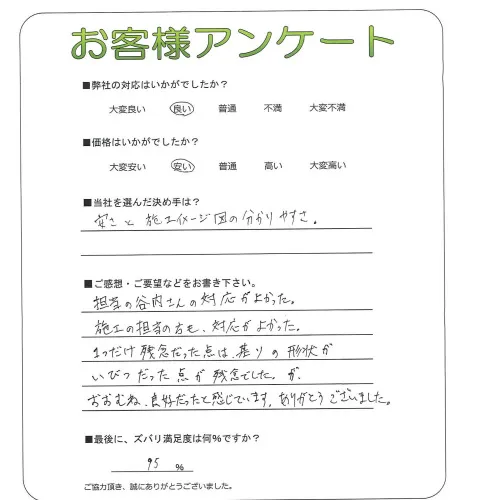 お客様アンケート
■弊社の対応はいかがでしたか？
大変良い 良い 普通 不満 大変不満
■価格はいかがでしたか？
大変安い 安い 普通 高い 大変高い
■当社を選んだ決め手は？
安さと施工イメージ図の分かりやすさ。
■ご感想・ご要望などをお書き下さい。
担当の谷内さんの対応がよかった。
施工の担当の方も、対応がよかった。
1つだけ残念だった点は、基りの形状が
いびつだった点が残念でした。が、
おおむね、良好だったと感じています。ありがとうございました。
■最後に、ズバリ満足度は何%ですか？
95 %
ご協力頂き、誠にありがとうございました。